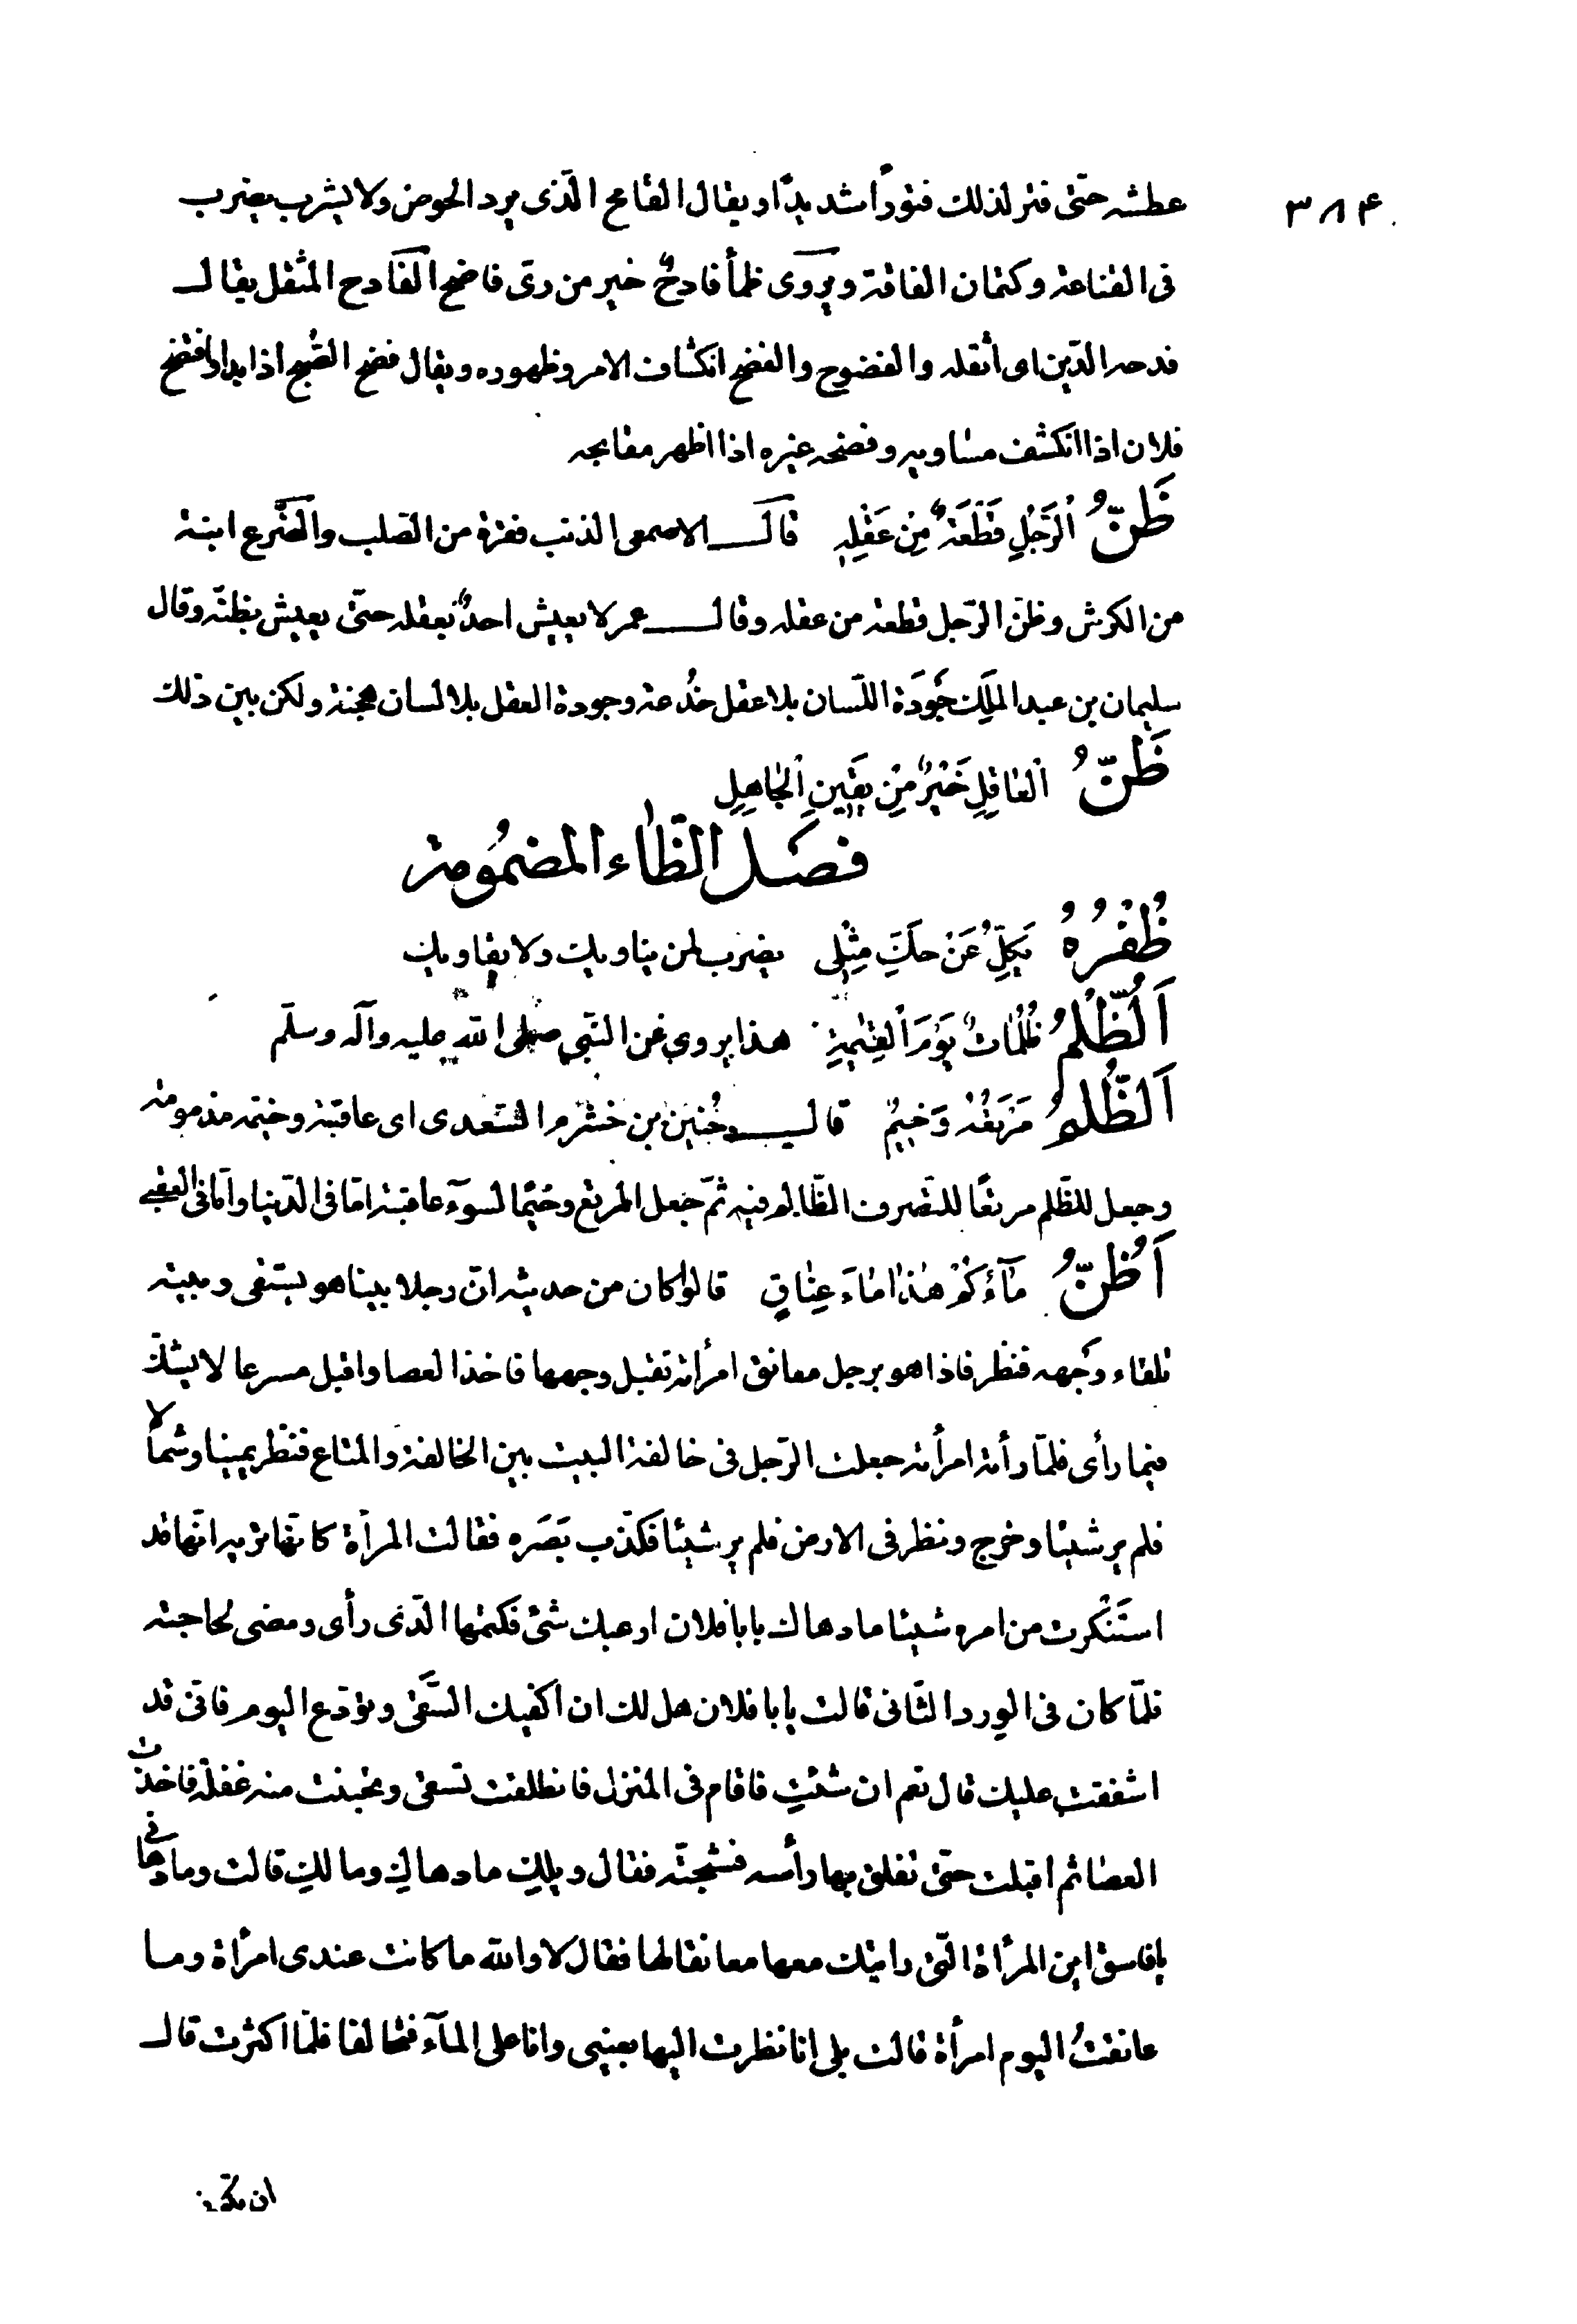 ٣٨۴
عطشه حتّى فتر لذلك فتوراً شديدًا ويقال القامح الّذى يرد الحوض ولا يشرب يضرب
فى القناعة وكتمان الفاقة ويروى ظمأ فادحٌ خير من رىّ فاضح الفادح المثقل يقال
فدحه الدّين اى أثقله والفضوح والفضح انكشاف الامر وظهوره ويقال فضح الصّبح اذا بدا وافتضح
فلان اذا انكشف مساويه وفضحه غيره اذا اظهر مقابحه
ظَنُّ الرَّجُلِ قِطْعَةٌ مِنْ عَقْلِهِ قال الاصمعى الذنب فقرة من الصّلب والضّرع ابنة
من الكرش وظنّ الرّجل قطعة من عقله وقال عمر لا يعيش احدٌ بعقله حتّى يعيش بظنّه وقال
سليمان بن عبد الملك جَودَة اللّسان بلا عقل خُدعة وجودة العقل بلا لسان هجنة ولكن بين ذلك
ظَنُّ الْعَاقِلِ خَيْرٌ مِنْ يَقِينِ الْجَاهِلِ
فصل الظّاء المضمُومة
ظُفُرُهُ يَكِلُّ عَنْ حَكِّ مِثْلِى يضرب لمن يناويك ولا يقاويك
اَلظُّلْمُ ظُلُمَاتٌ يَوْمَ الْقِيٰمَةِ هذا يروى عن النّبى صلى الله عليه وآله وسلّم
اَلظُّلْمُ مَرْتَعُهُ وَخِيمٌ قال حُنين بن خشرم السّعدى اى عاقبته وختمه مذمومة
وجعل للظّلم مرتعًا للتصرف الظّالم فيه ثمّ جعل المرتع وخيمًا لسوء عاقبته امّا فى الدّنيا وامّا فى العقبى
اَظُنُّ مَآءَكُمْ هٰذَا مَاءَ عِنَاقٍ قالوا كان من حديثه انّ رجلا بينا هو يستقى وبيته
تلقاء وجهه فنظر فاذا هو برجل معانق امرأته تقبل وجهها فاخذ العصا واقبل مسرعا لا يشكّ
فيما رأى فلمّا رأته امرأته جعلت الرّجل فى خالفة البيت بين الخالفة والمتاع فنظر يمينا وشمالا
فلم ير شيئا وخرج ونظر فى الارض فلم ير شيئا فكذّب بَصَره فقالت المرأة كانّها تريه انّها قد
استنكرت من امره شيئا ما دهاك يا با فلان ارعبك شئ فكتمها الّذى رأى ومضى لحاجته
فلمّا كان فى الورد الثّانى قالت يا با فلان هل لك ان اكفيك السّقى وتودّع اليوم فانّى قد
اشفقت عليك قال نعم ان شئتِ فاقام فى المنزل فانطلقت تسقى وتحينت منه غفلة فاخذت
العصا ثم اقبلت حتّى تفلق بها رأسه فشجّته فقال ويلكِ ما دهاكِ وما لكِ قالت وما دهانى
يا فاسق اين المرأة الّتى رايتك معها معانقا لها فقال لا والله ما كانت عندى امرأة وما
عانقتُ اليوم امرأة قالت بلى انا نظرت اليها بعينى وانا على المآء فتحالفا فلمّا اكثرت قال